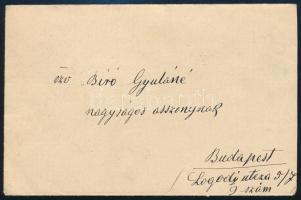 özv Bíró Gyuláné
nagyságos asszonynak
Budapest
Logody utcza
9 szám